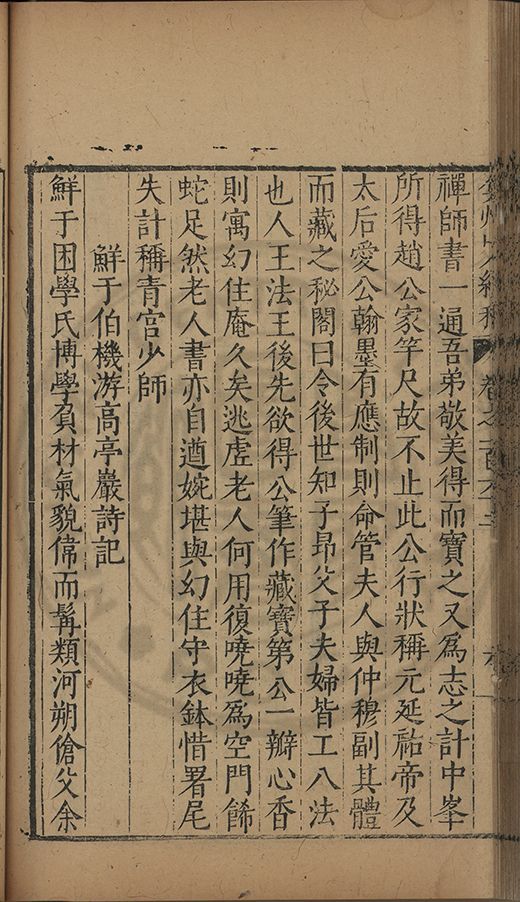 禪師書一通吾弟敬美得而寶之又爲志之計中峯
所得趙公家竿尺故不止此公行狀稱元延祐帝及
太后愛公翰墨有應制則命管夫人與仲穆副其體
而藏之秘閣曰令後世知子昂父子夫婦皆工八法
也人王法王後先欲得公筆作藏寶第公一瓣心香
則寓幻住庵久矣逃虗老人何用復嘵嘵爲空門餙
蛇足然老人書亦自遒婉堪與幻住守衣鉢惜署尾
失計稱青宮少師
鮮于伯機游高亭巖詩記
鮮于困學氏博學負材氣貌偉而髯類河朔傖父余